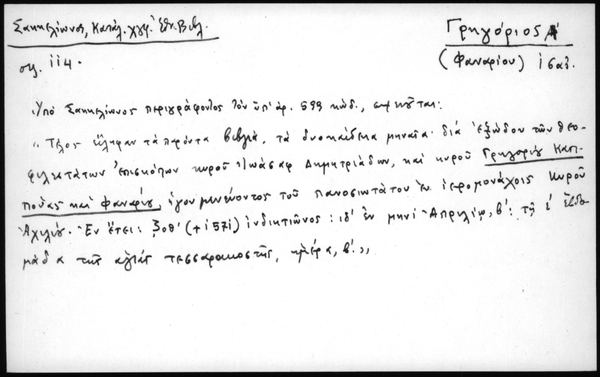 Σακκελίωνος, Κατάλ. χγφ. Ἐθν. Βιβλ.
Γρηγόριος Α'
σελ. 114.
(Φαναρίου) ισαϊ.
Ὑπὸ Σακκελίωνος περιγράφοντος τὸν ὑπ' ἀρ. 593 κώδ., σημειοῦται:
„Τέλος εἴληφαν τὰ παρόντα βιβλία, τὰ δυοκαίδεκα μηναῖα· διὰ ἐξόδου τῶν θεο-
φιλεστάτων ἐπισκόπων κυροῦ Ἰωάσαφ Δημητριάδων, καὶ κυροῦ Γρηγορίου Καπ-
πούας καὶ Φαναρίου, ἡγουμενεύοντος τοῦ πανοσιωτάτου ἐν ἱερομονάχοις κυροῦ
Ἀχιλίου. Ἐν ἔτει: ζοθ' (+1571) ἰνδικτιῶνος: ιδ' ἐν μηνὶ Ἀπριλίῳ, β': τῇ ἑβδο-
μάδα τῆς ἁγίας τεσσαρακοστῆς, ἡμέρᾳ, β'.„